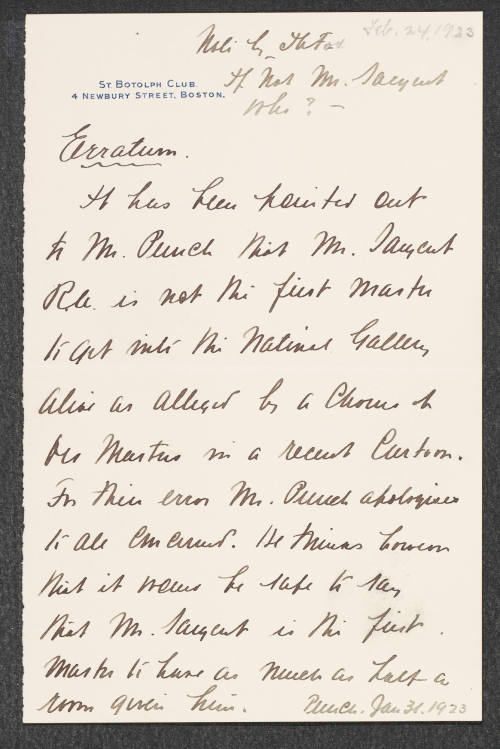 Feb. 24, 1923
Note by
If Not Mr. Sargent
Who? —
ST. BOTOLPH CLUB.
4 NEWBURY STREET, BOSTON.
Erratum.
It has been pointed out
to Mr. Punch that Mr. Sargent
R.A. is not the first master
to get into the National Gallery
alive as alleged by a Chorus of
Old Masters in a recent Cartoon.
For this error Mr. Punch apologises
to all concerned. He thinks however
that it would be safe to say
that Mr. Sargent is the first
master to have as much as half a
room given him.
Punch. Jan 31. 1923